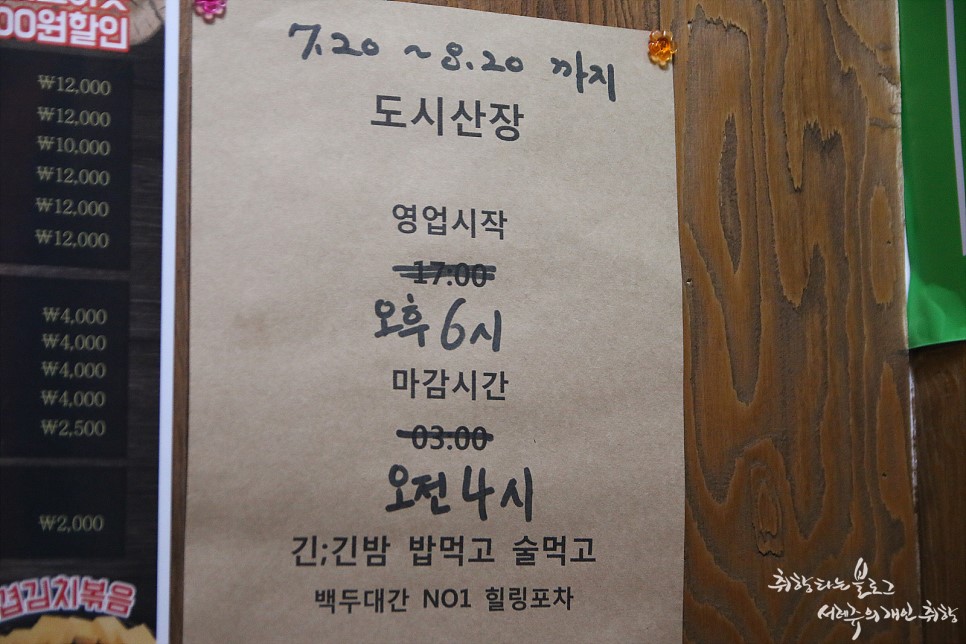 00원할인
₩12,000
₩12,000
₩10,000
₩12,000
₩12,000
₩12,000
₩4,000
₩4,000
₩4,000
₩4,000
₩2,500
₩2,000
섭김치볶음
7.20 ~ 8.20 까지
도시산장
영업시작
17:00
오후 6시
마감시간
03:00
오전 4시
긴;긴밤 밥먹고 술먹고
백두대간 NO1 힐링포차
취향타는 블로그
서례쥬의 개인 취향